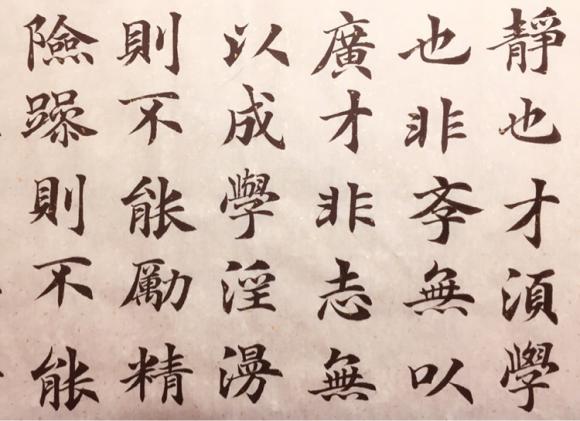 靜也才須學
也非孝無以
廣才非志無
以成學淫漫
則不能勵精
險躁則不能